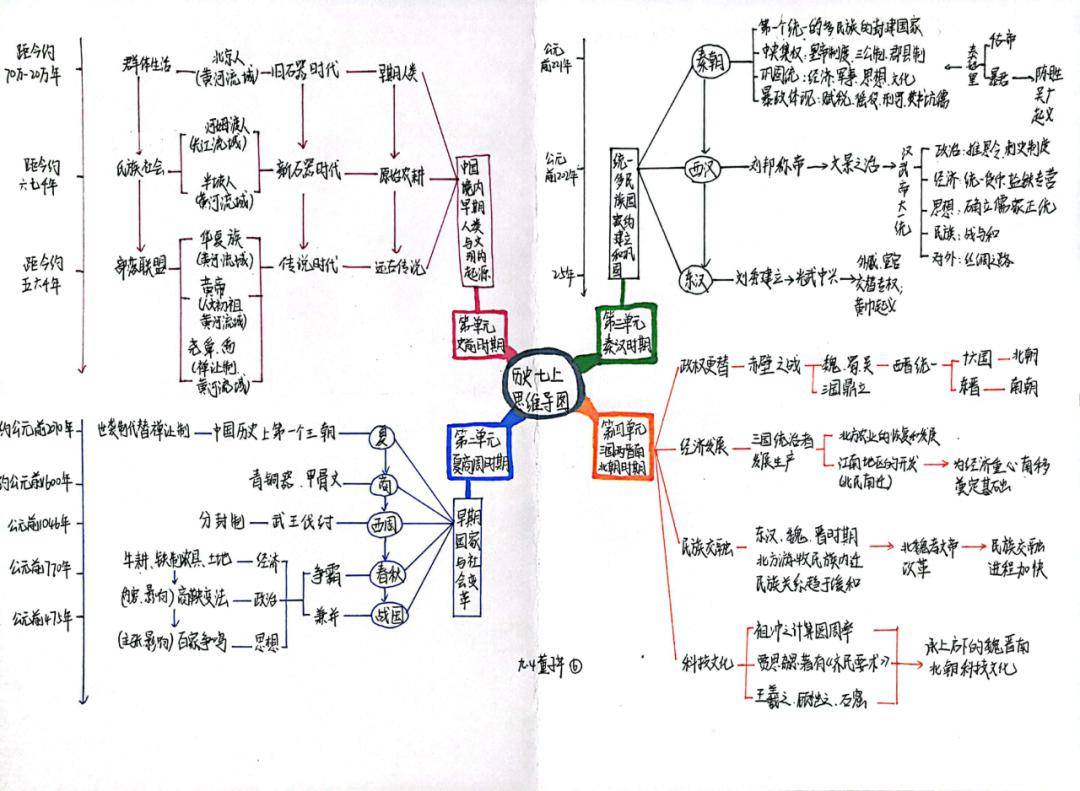 历史七上
思维导图
第一单元
史前时期
中国境内早期人类与文明的起源
距今约
70万-20万年
群体生活
北京人
(黄河流域)
旧石器时代
早期人类
距今约
六七千年
氏族社会
河姆渡人
(长江流域)
半坡人
(黄河流域)
新石器时代
原始农耕
距今约
五六千年
部落联盟
华夏族
(黄河流域)
黄帝
(人文初祖
黄河流域)
尧舜、禹
(禅让制
黄河流域)
传说时代
远古传说
第二单元
夏商周时期
早期国家与社会变革
世袭制代替禅让制
中国历史上第一个王朝
夏
公元前1600年
青铜器、甲骨文
商
公元前1046年
分封制
武王伐纣
西周
公元前770年
牛耕、铁制农具、土地
经济
争霸
春秋
商鞅变法
政治
公元前475年
兼并
战国
百家争鸣
思想
第三单元
秦汉时期
统一多民族国家的建立和巩固
公元
前221年
秦朝
第一个统一的多民族的封建国家
中央集权:皇帝制度、三公制、郡县制
巩固统一:经济、军事、思想、文化
暴政体现:赋税、徭役、刑罚、焚书坑儒
秦始皇
暴君
陈胜
吴广
起义
公元
前202年
西汉
刘邦称帝
文景之治
汉武帝大一统
政治:推恩令、刺史制度
经济:统一货币、盐铁专营
思想:确立儒家正统
民族:战与和
对外:丝绸之路
25年
东汉
刘秀建立
光武中兴
外戚、宦官
交替专权,
黄巾起义
第四单元
三国两晋南
北朝时期
政权更替
赤壁之战
魏、蜀、吴
三国鼎立
西晋统一
十六国
北朝
东晋
南朝
经济发展
三国统治者
发展生产
北方农业的恢复和发展
江南地区的开发
(北民南迁)
为经济重心南移
奠定基础
民族交融
东汉、魏、晋时期
北方游牧民族内迁
民族关系趋于缓和
北魏孝文帝
改革
民族交融
进程加快
科技文化
祖冲之计算圆周率
贾思勰著有《齐民要术》
王羲之、顾恺之、石窟
承上启下的魏晋南
北朝科技文化